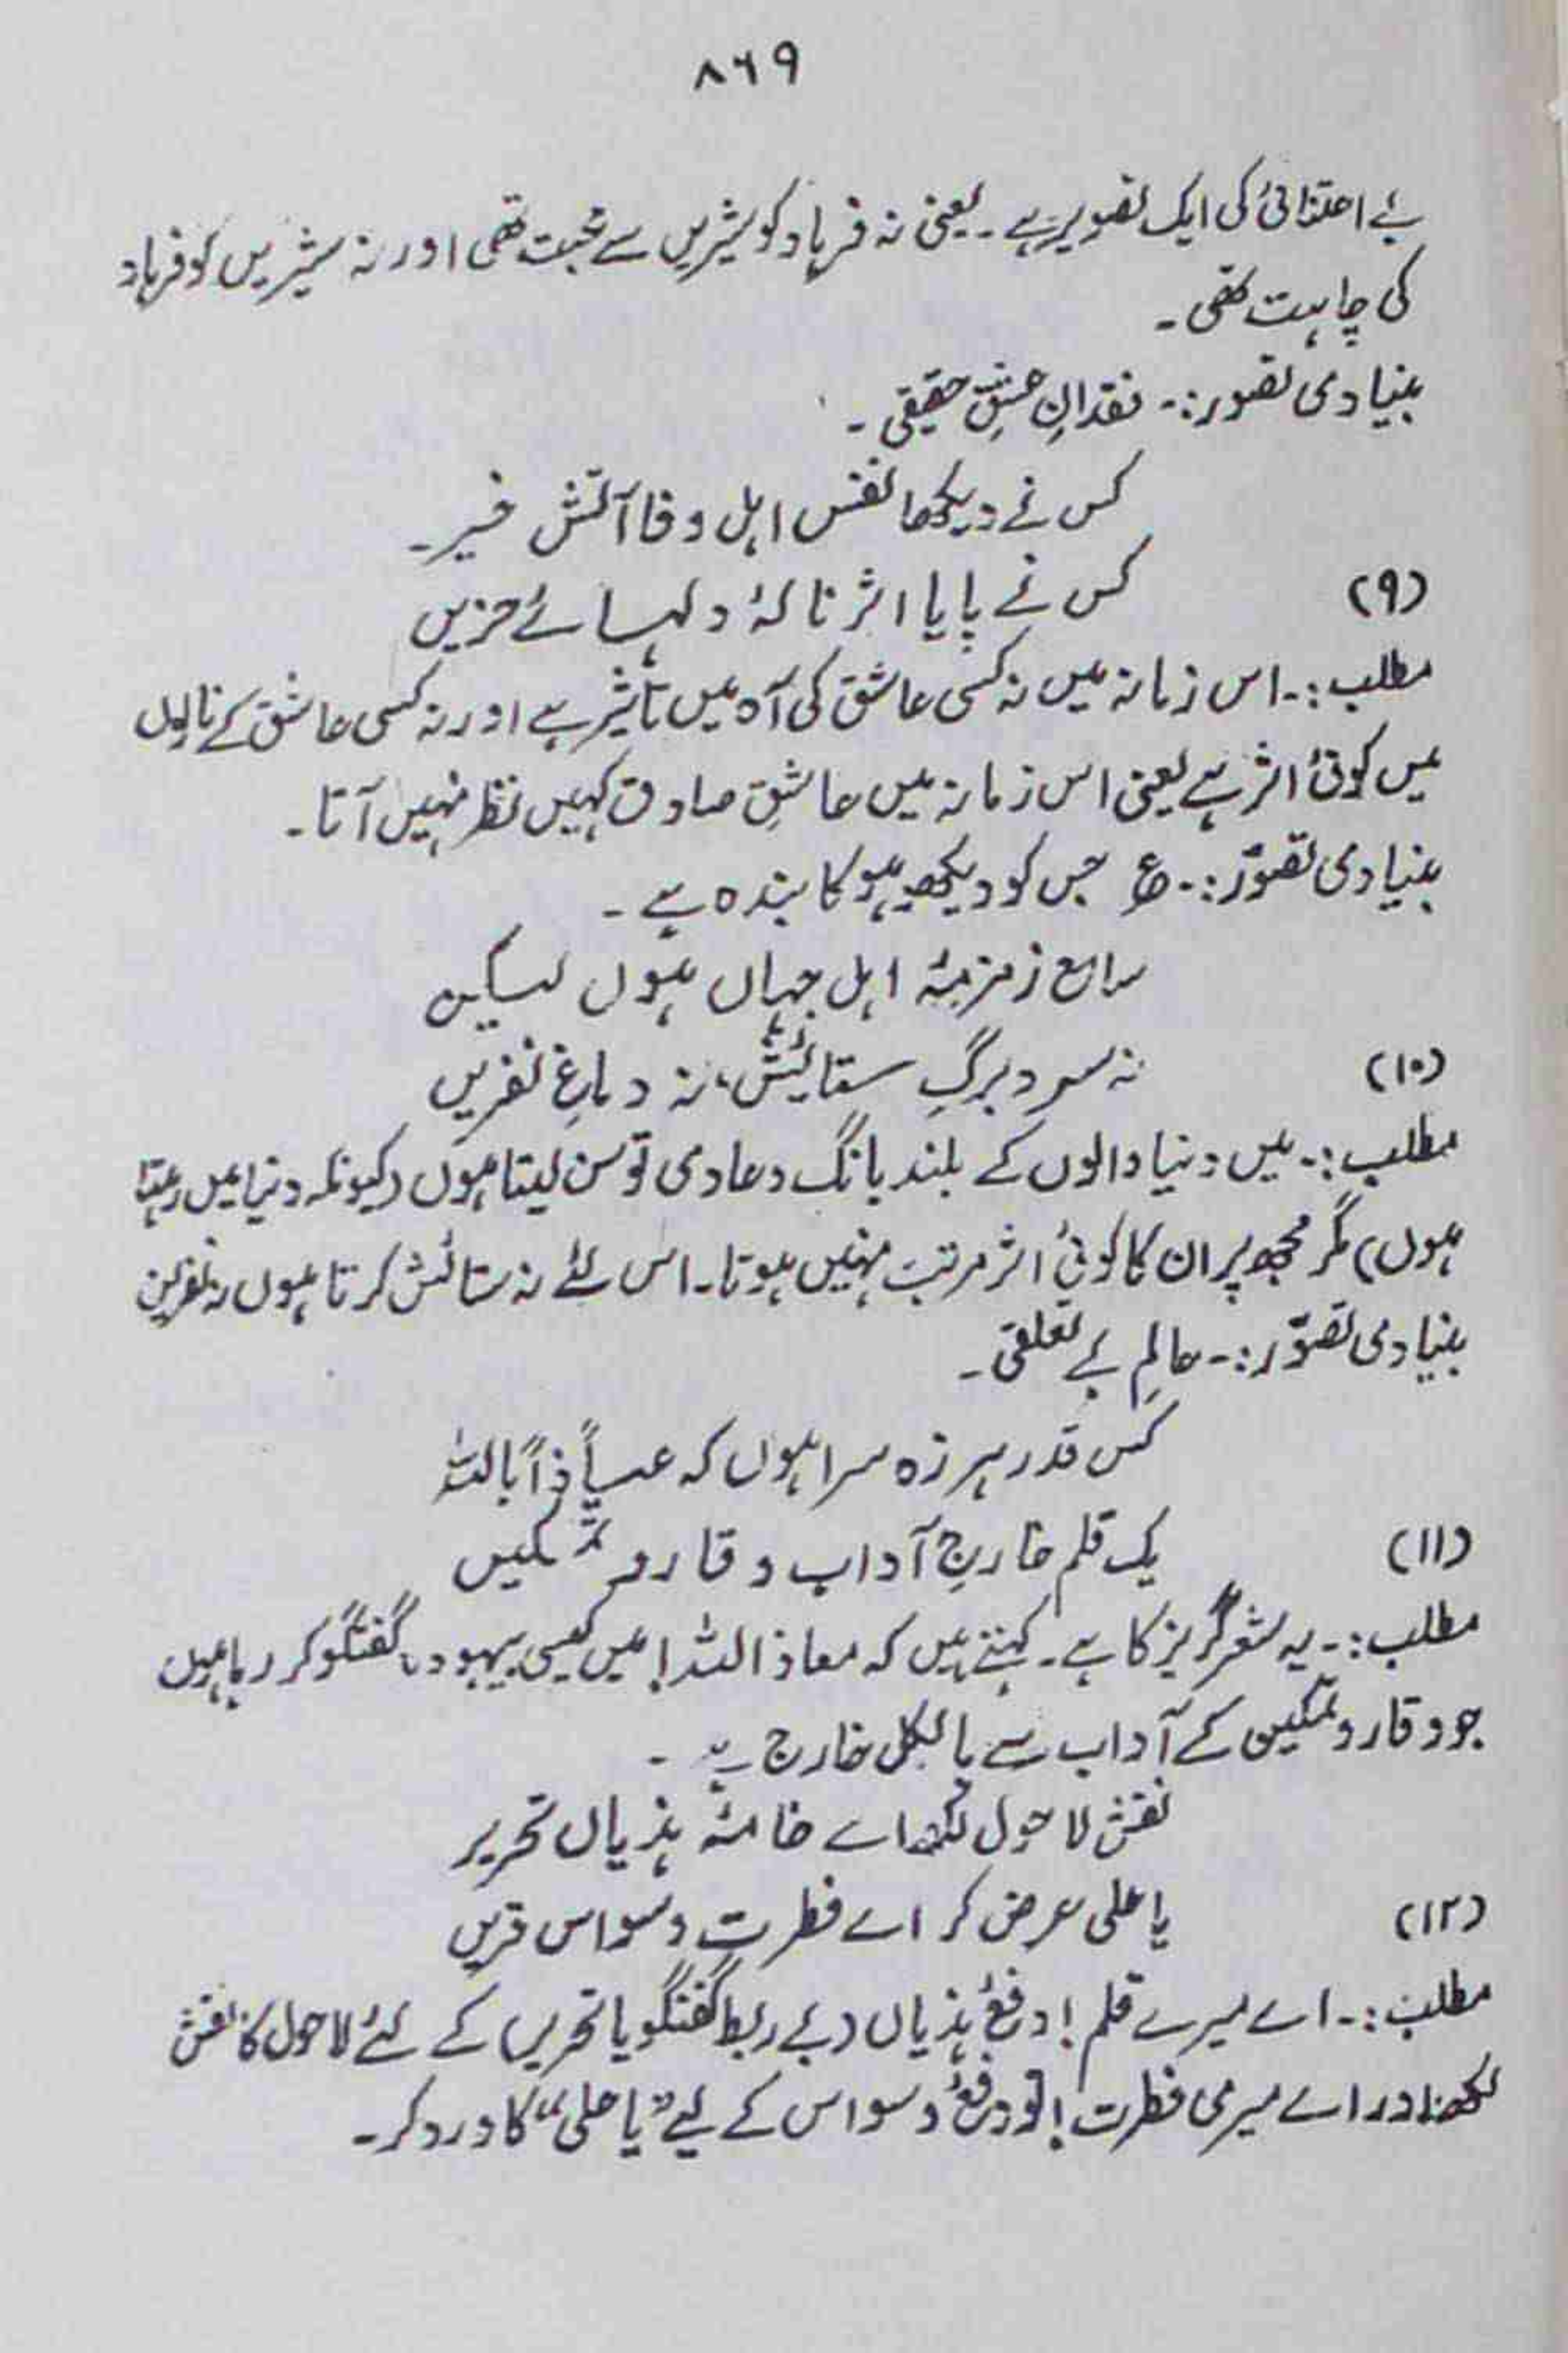 ۸۶۹
بے اعتنائی کی ایک تصویر ہے ۔ یعنی نہ فرہاد کو شیریں سے محبت تھی اور نہ شیریں کو فرہاد
کی چاہت تھی ۔
بنیادی تصور :۔ فقدانِ عشقِ حقیقی ۔
کس نے دیکھا نفس اہل وفا آتش خیز ۔
(۹) کس نے پایا اثر نالۂ دلہائے حزیں
مطلب :۔ اس زمانہ میں نہ کسی عاشق کی آہ میں تاثیر ہے اور نہ کسی عاشق کے نالوں
میں کوئی اثر ہے یعنی اس زمانہ میں عاشقِ صادق کہیں نظر نہیں آتا ۔
بنیادی تصوّر :۔ ع جس کو دیکھو ہو کا بندہ ہے ۔
سامع زمزمۂ اہل جہاں ہوں لیکن
(۱۰) نہ سر و برگِ ستائش، نہ دماغِ نفریں
مطلب :۔ میں دنیا والوں کے بلند بانگ دعاوی تو سن لیتا ہوں (کیونکہ دنیا میں رہتا
ہوں) مگر مجھ پر ان کا کوئی اثر مرتب نہیں ہوتا ۔ اس لئے نہ ستائش کرتا ہوں نہ نفرین
بنیادی تصوّر :۔ عالمِ بے تعلقی ۔
کس قدر ہرزہ سرا ہوں کہ عیاذاً باللہ
(۱۱) یک قلم خارجِ آداب وقار و تمکیں
مطلب :۔ یہ شعر گریز کا ہے ۔ کہتے ہیں کہ معاذ اللہ! میں کیسی بیہودہ گفتگو کر رہا ہوں
جو وقار و تمکین کے آداب سے بالکل خارج ہے ۔
نقش لاحول لکھ اے خامۂ ہذیاں تحریر
(۱۲) یا علی عرض کر اے فطرتِ وسواس قریں
مطلب :۔ اے میرے قلم! دفعِ ہذیاں (بے ربط گفتگو یا تحریر) کے لئے لاحول کا نقش
لکھ اور اے میری فطرت! تو دفعِ وسواس کے لیے "یا علی" کا ورد کر ۔